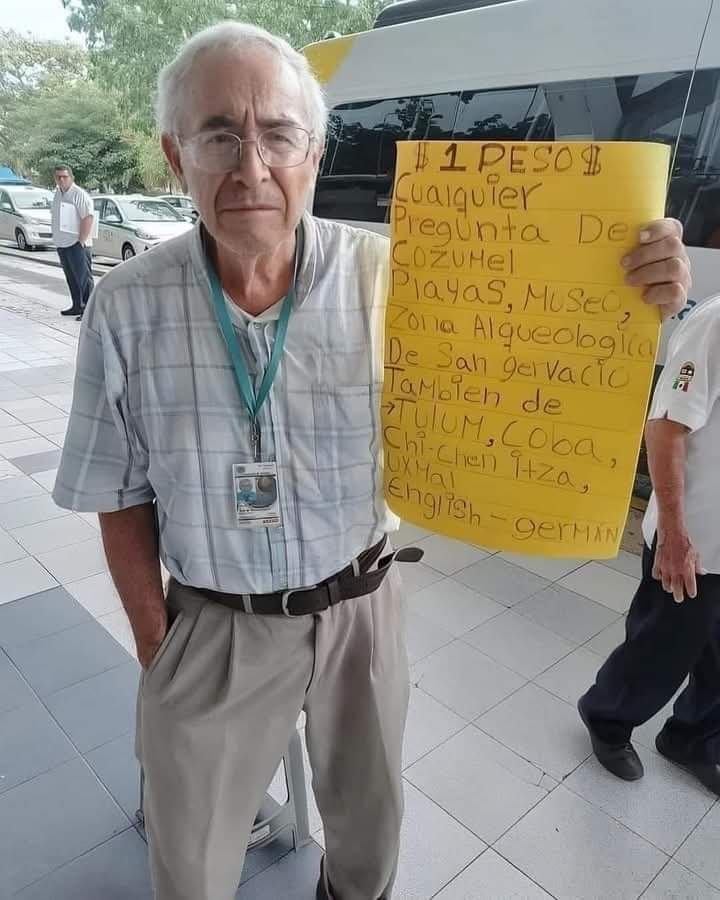 $ 1 PESO $
Cualquier
Pregunta De
COZUMEL
Playas, MUSEO,
Zona Alqueologica
De San gervacio
También de
→TULUM, COBA,
Chi-Chen itza,
UXMal
English - german